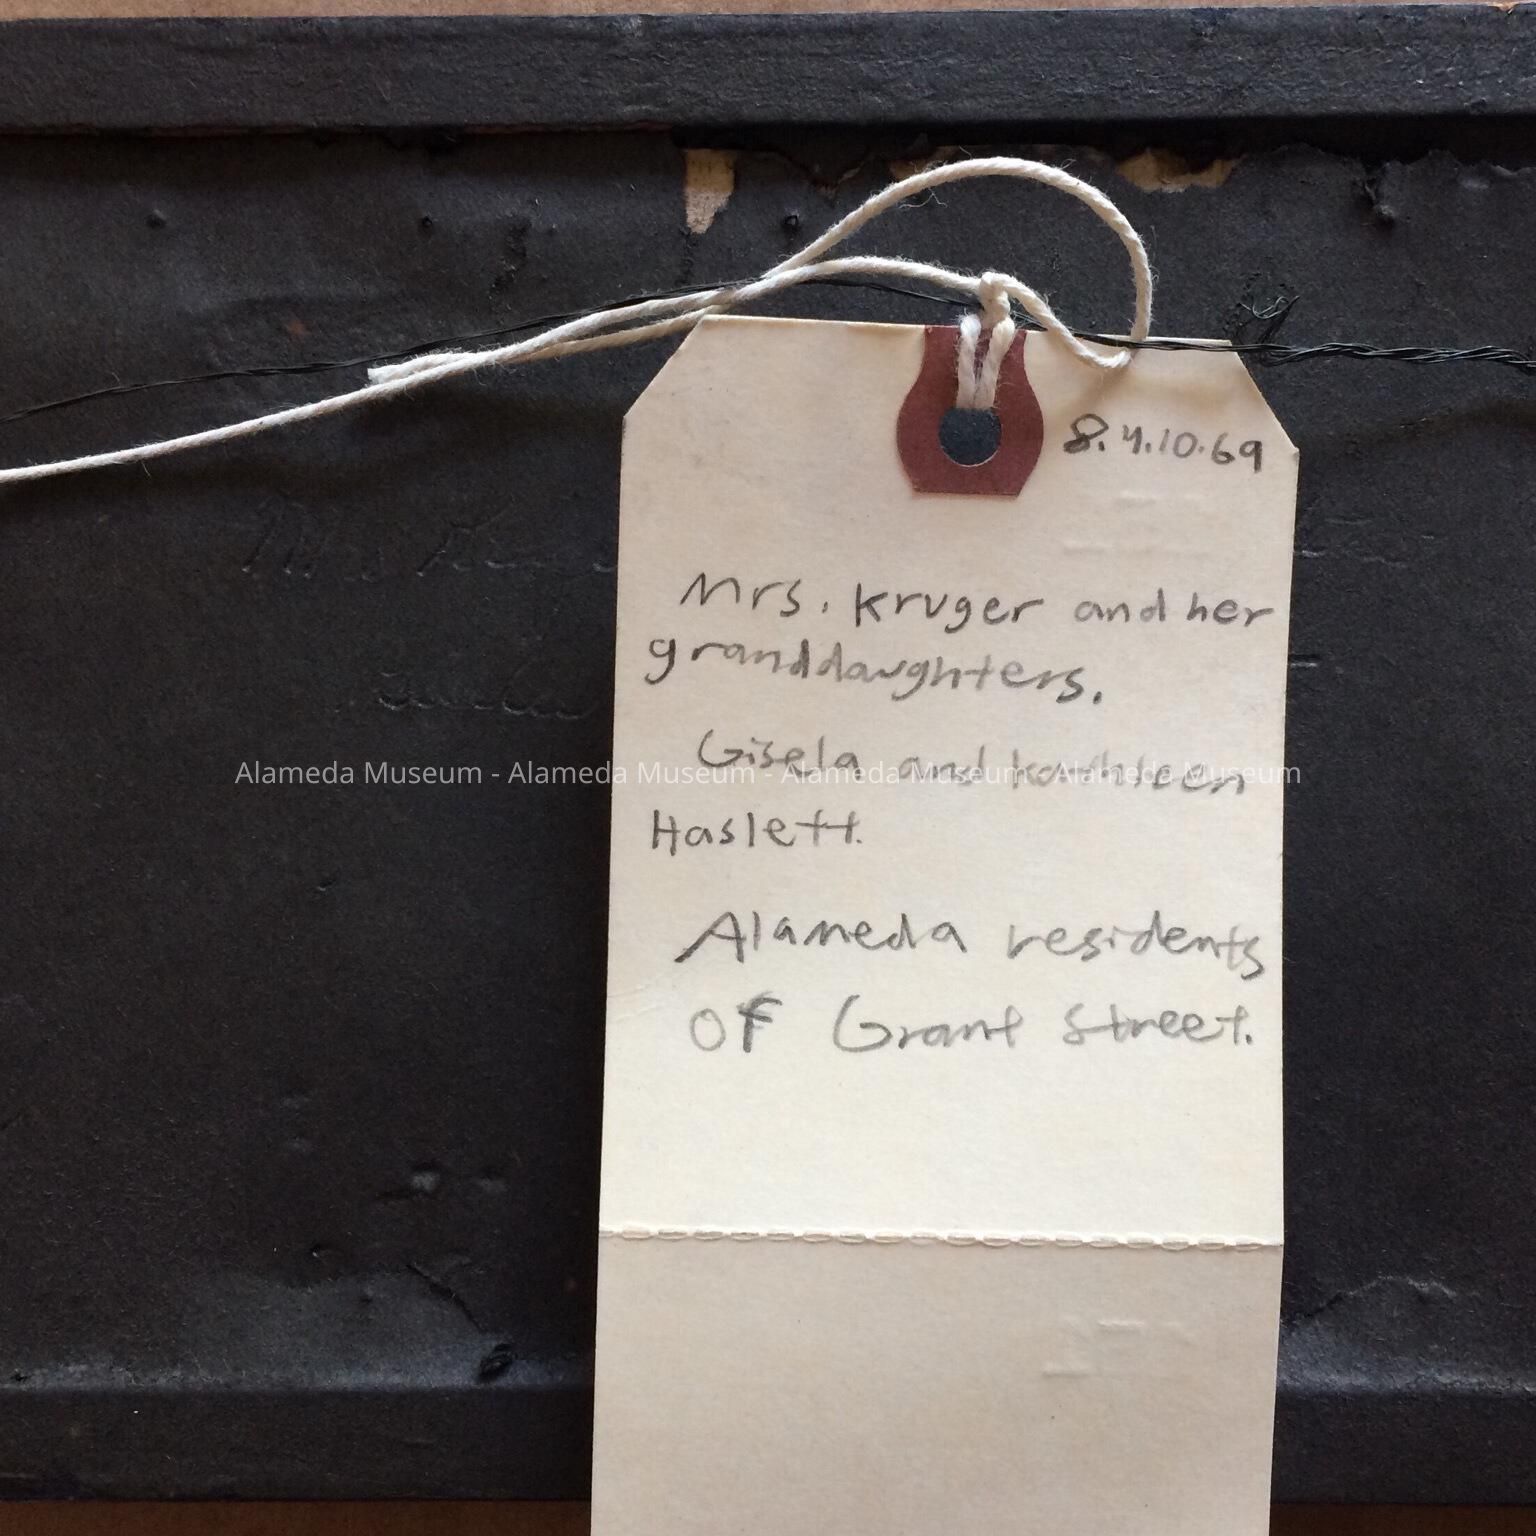 8.4.10.69
Mrs. Kruger and her
granddaughters.
Gisela and Kathleen
Alameda Museum - Alameda Museum - Alameda Museum - Alameda Museum
Haslett.
Alameda residents
of Grant Street.
Mrs